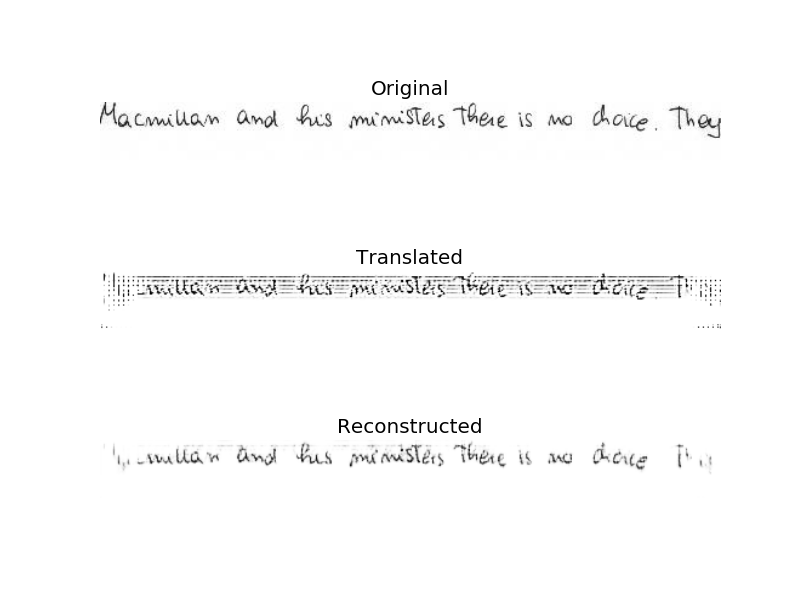 Original
Macmillan and his ministers There is no choice. They
Translated
and his ministers There is no choice
Reconstructed
and his ministers There is no choice